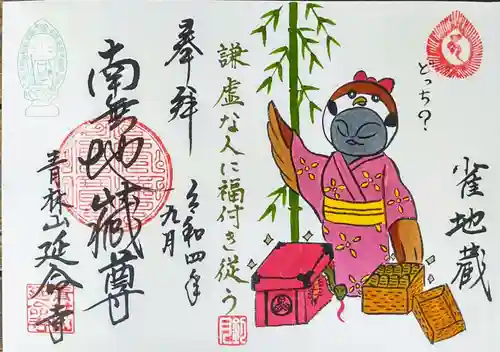 どっち?
雀地蔵
謙虚な人に福付き従う
奉拝
令和四年
九月
南無地蔵尊
青林山延命寺